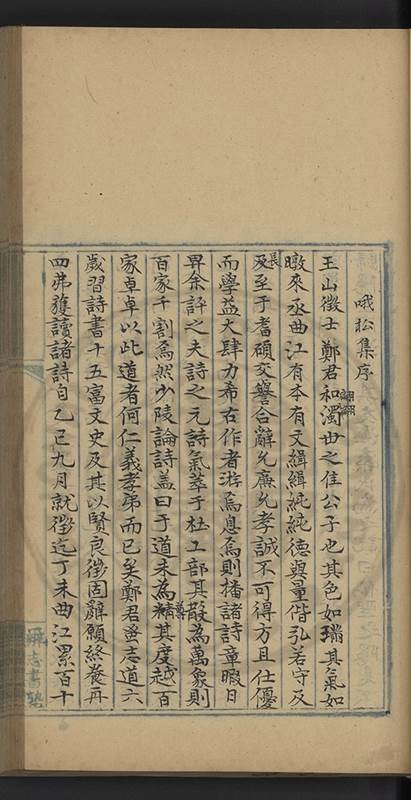 哦松集序
玉山徵士鄭君和濁世之佳公子也其色如瑞其氣如
翩翩
暾來丞曲江有本有文緝緝純純德與量偕弘若守及
長
及至于耆碩交譽合辭允廉允孝誠不可得方且仕優
而學益大肆力希古作者游焉息焉則播諸詩章暇日
畀余評之夫詩之元詩氣萃于杜工部其散為萬象則
百家千割焉然少陵論詩蓋曰于道未為尊其度越百
家卓卓以此道者何仁義孝弟而已矣鄭君蚤志道六
歲習詩書十五富文史及其以賢良徵固辭願終養再
四弗獲讀諸詩自乙巳九月就徵迄丁未曲江累百十